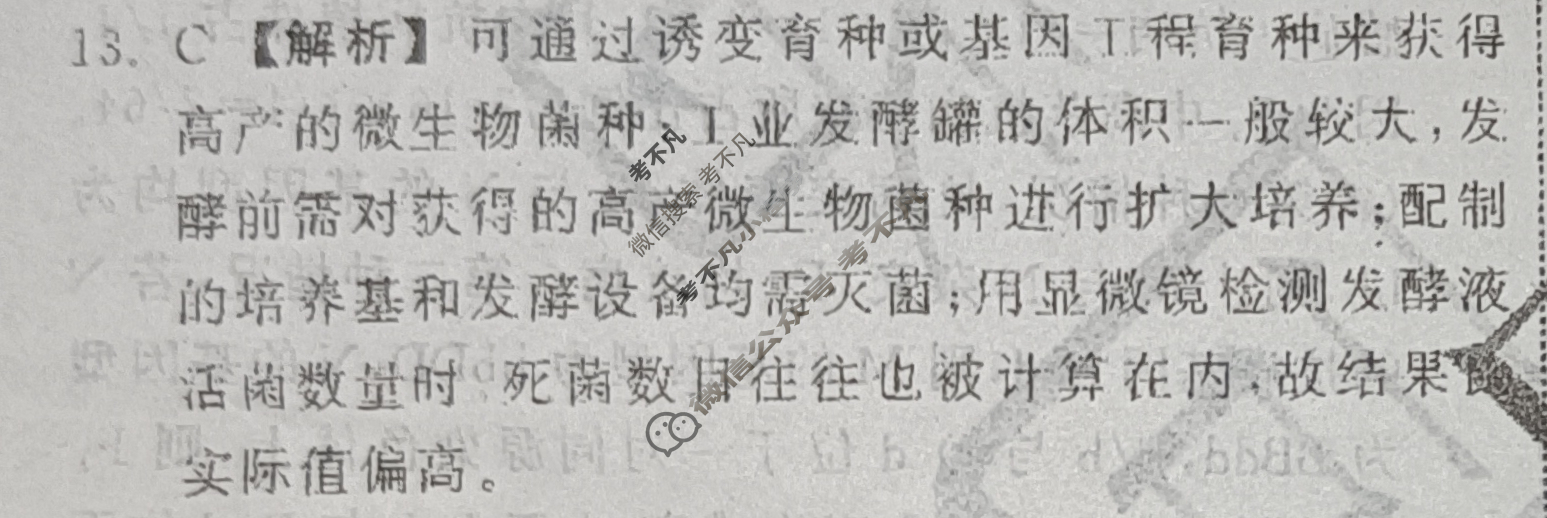 13. C 【解析】可通过诱变育种或基因工程育种来获得
高产的微生物菌种;工业发酵罐的体积一般较大,发
酵前需对获得的高产微生物菌种进行扩大培养;配制
的培养基和发酵设备均需灭菌;用显微镜检测发酵液
活菌数量时,死菌数目往往也被计算在内,故结果
实际值偏高。
考不凡
微信搜索 考不凡
考不凡小
微信公众号 考不